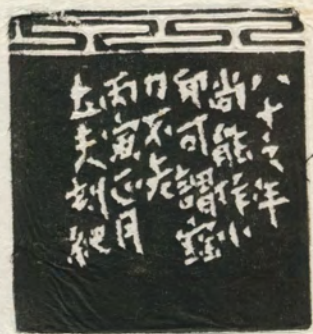 八十之年
尚能作小
印可謂宝
刀不老
丙寅正月
夫刻